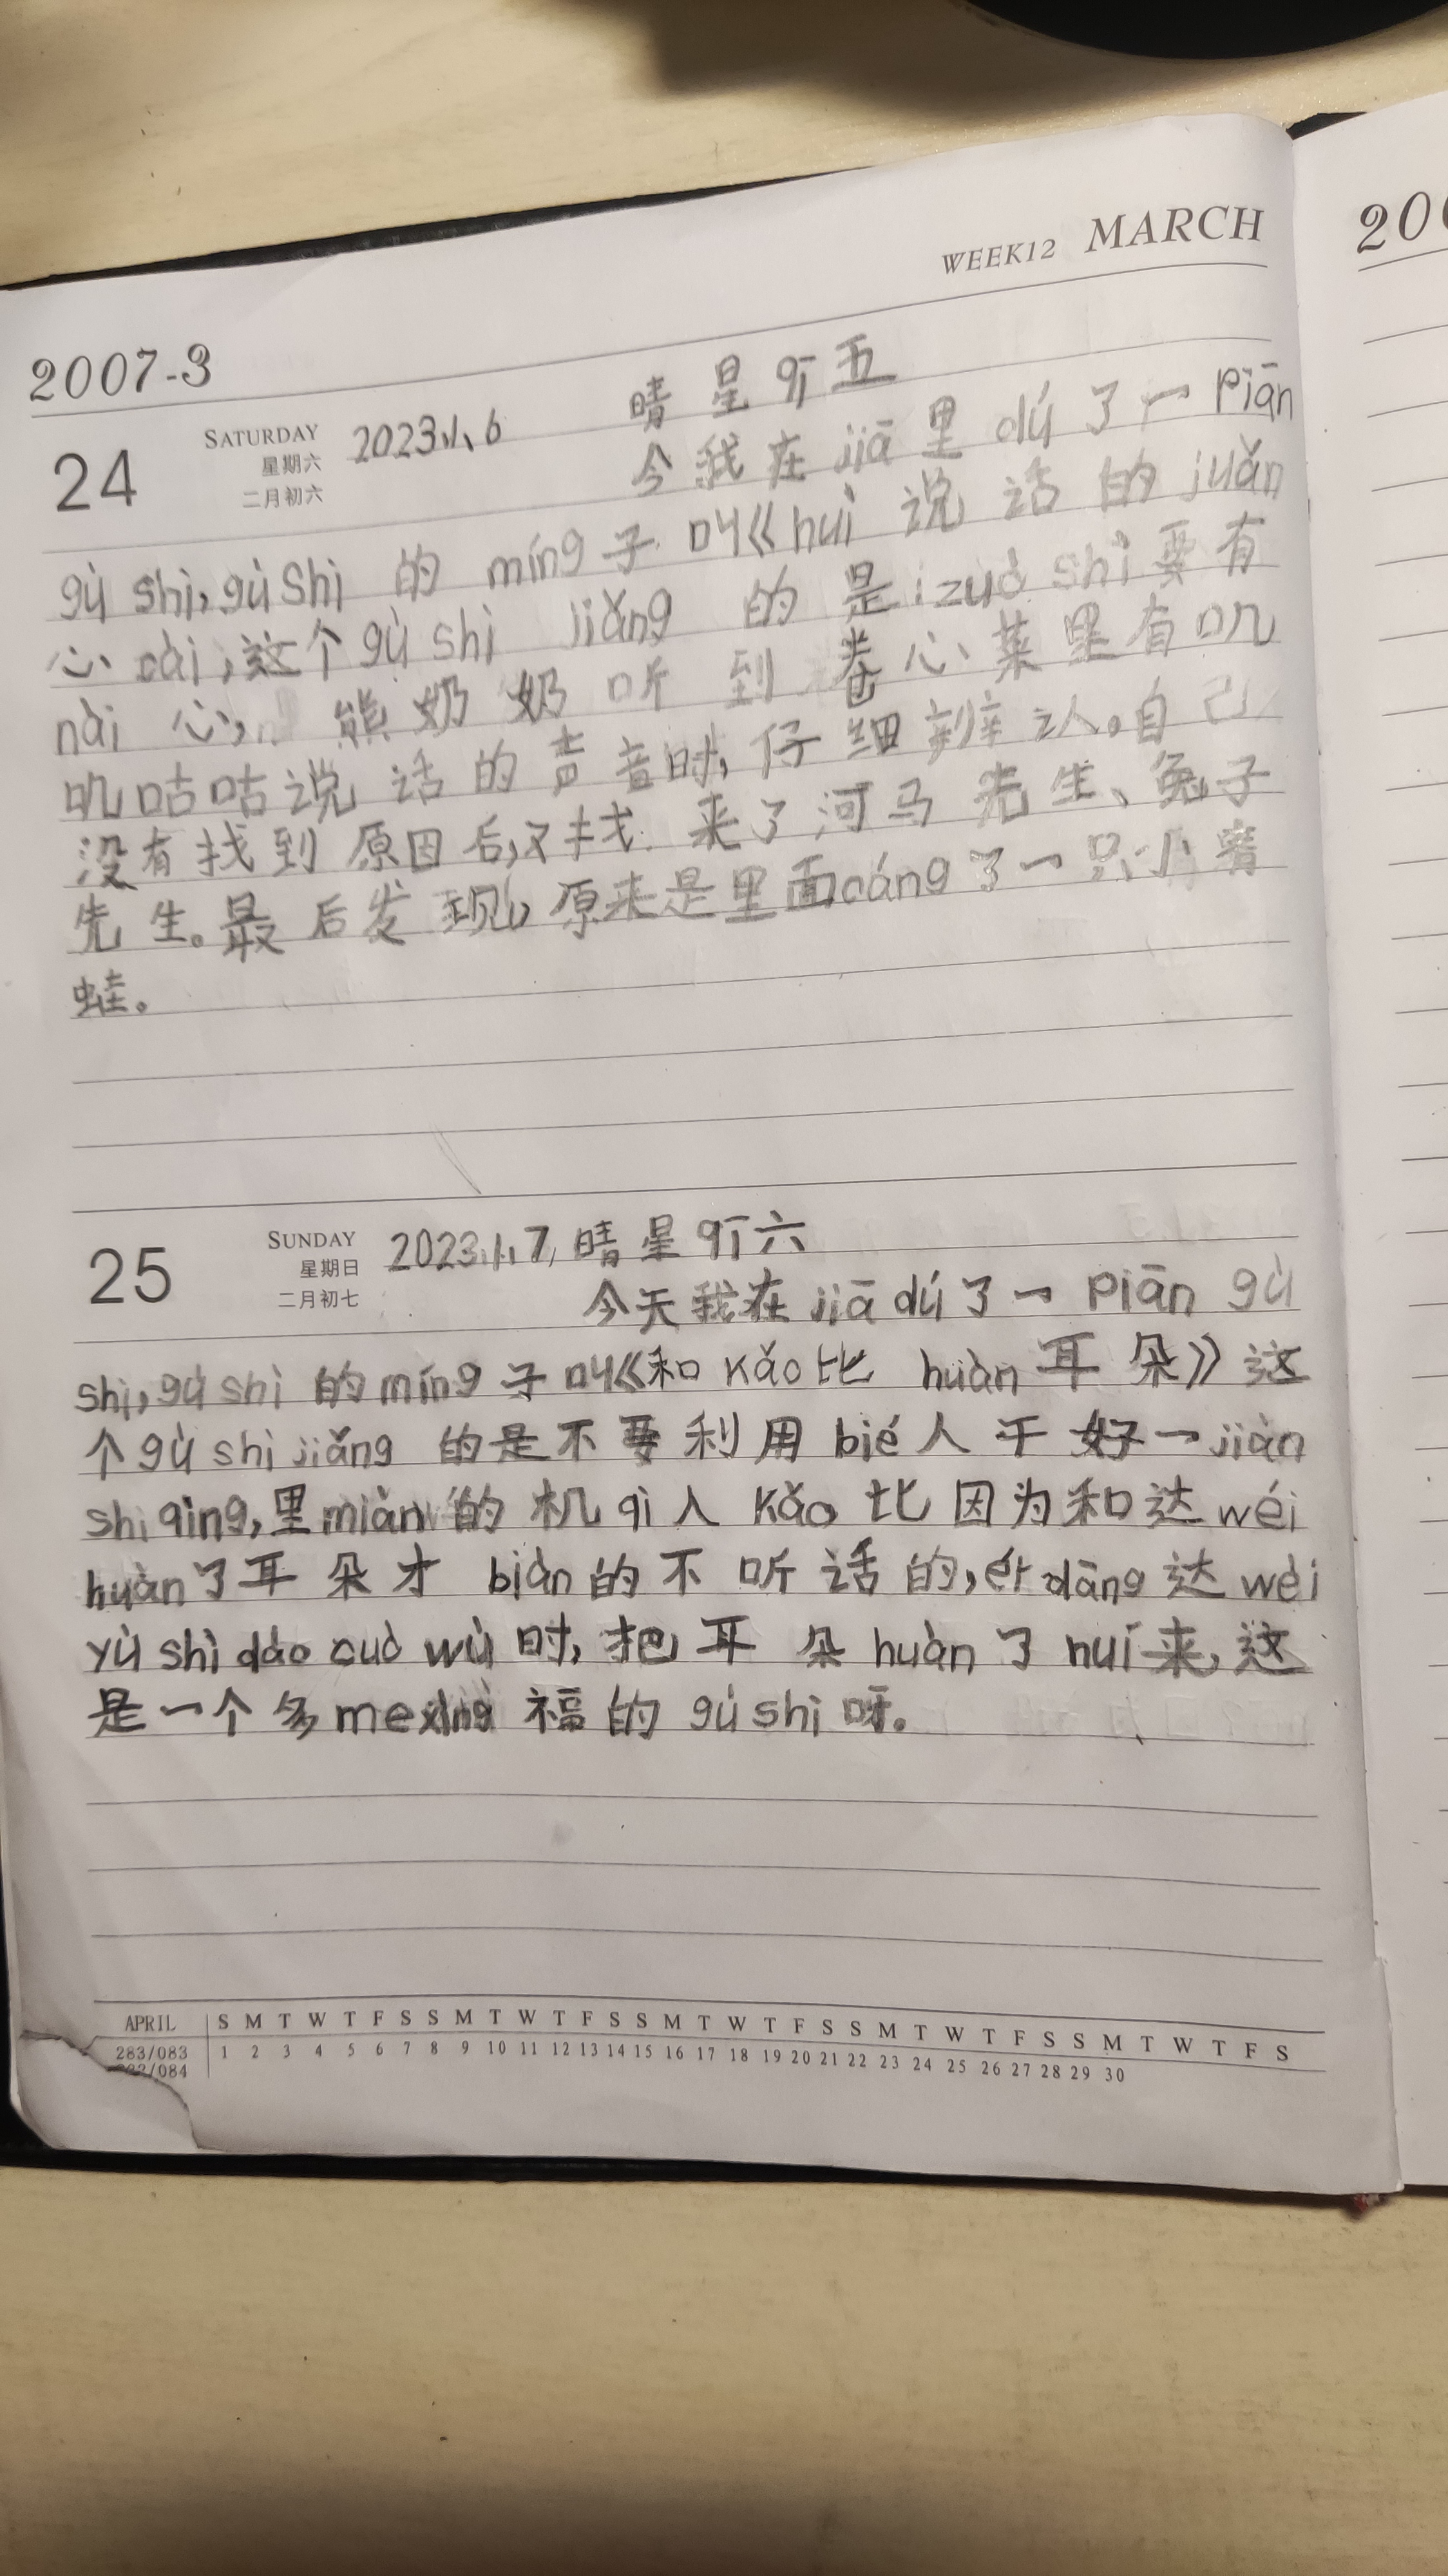 WEEK12 MARCH
200
2007-3
24 SATURDAY 星期六 二月初六 2023.1.6 晴 星 qī 五
今我在jiā里dú了一Piān
gù shi,gù shì 的 míng子叫《huì 说 话 的 juǎn
心cài,这个gù shi jiǎng 的是 zuò shì要有
nài 心, 熊奶奶听到卷心菜里有叽
叽咕咕说话的声音时,仔细辨认。自己
没有找到原因后,又找来了河马先生、兔子
先生。最后发现,原来是里面cáng了一只小青
蛙。
25 SUNDAY 星期日 二月初七 2023.1.7, 晴星qī六
今天我在jiā dú了一Piān gù
shi,gù shì 的míng子叫《和kǎo比 huàn耳朵》这
个gù shi jiǎng 的是不要利用bié人干好一jiàn
shì qing,里miàn的机qì人kǎo比因为和达wéi
huàn了耳朵才 biàn的不听话的,ér dāng达wéi
yù shì dào cuò wù时,把耳朵huàn了huí来,这
是一个多me xìng福的gù shi呀。
APRIL S M T W T F S S M T W T F S S M T W T F S S M T W T F S S M T W T F S
283/083 1 2 3 4 5 6 7 8 9 10 11 12 13 14 15 16 17 18 19 20 21 22 23 24 25 26 27 28 29 30
/084